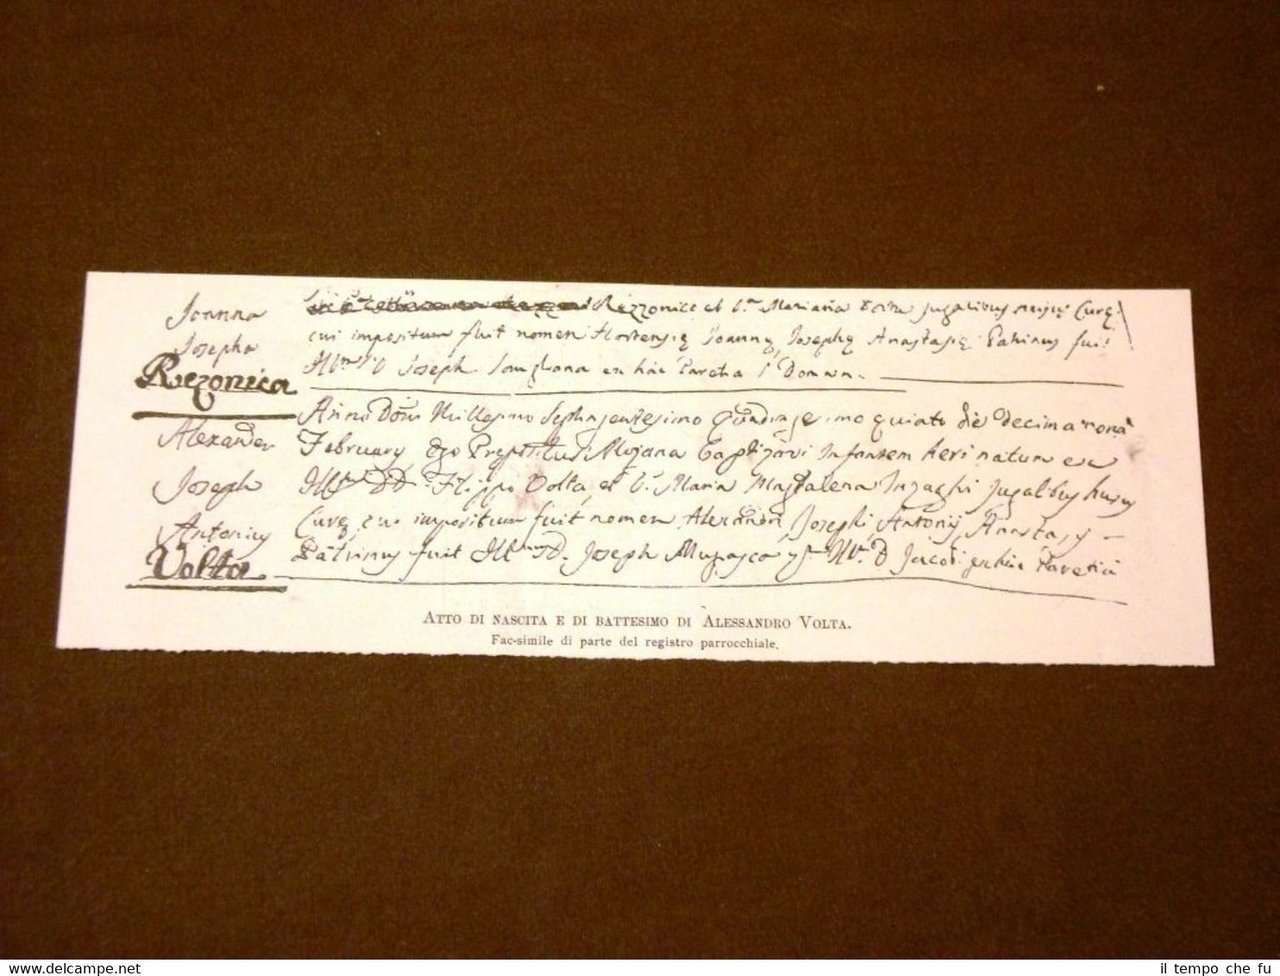 Joanna
Josepha
Rezonica
Rezzonico et D.
cui impositum fuit nomen Hortensię Joannę Josephę Anastasię Patrinus fuit
Joseph
Alexander
Joseph
Antonius
Volta
Anno Dom Millesimo Septingentesimo quadragesimo quinto die decima nona
February ego Prępositus Mojana baptizavi Infantem heri natum ex
Illm DD Filippo Volta, et D. Maria Magdalena Inzaghi Jugalibus huius
Curę cui impositum fuit nomen Alexandri Josephi Antonij Anastasy
Patrinus fuit Illm D. Joseph D Jacobi
ATTO DI NASCITA E DI BATTESIMO DI ALESSANDRO VOLTA.
Fac-simile di parte del registro parrocchiale.
il tempo che fu